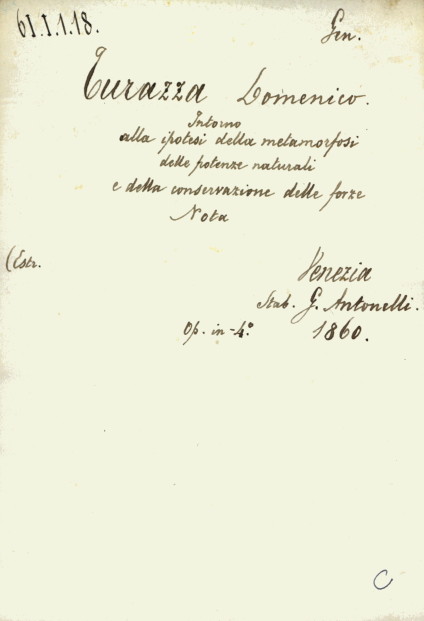 61.I.1.18.
Gen.
Turazza Domenico.
Intorno
alla ipotesi della metamorfosi
delle potenze naturali
e della conservazione delle forze
Nota
(Estr.
Venezia
Stab. G. Antonelli.
Op. in-4.° 1860.
C